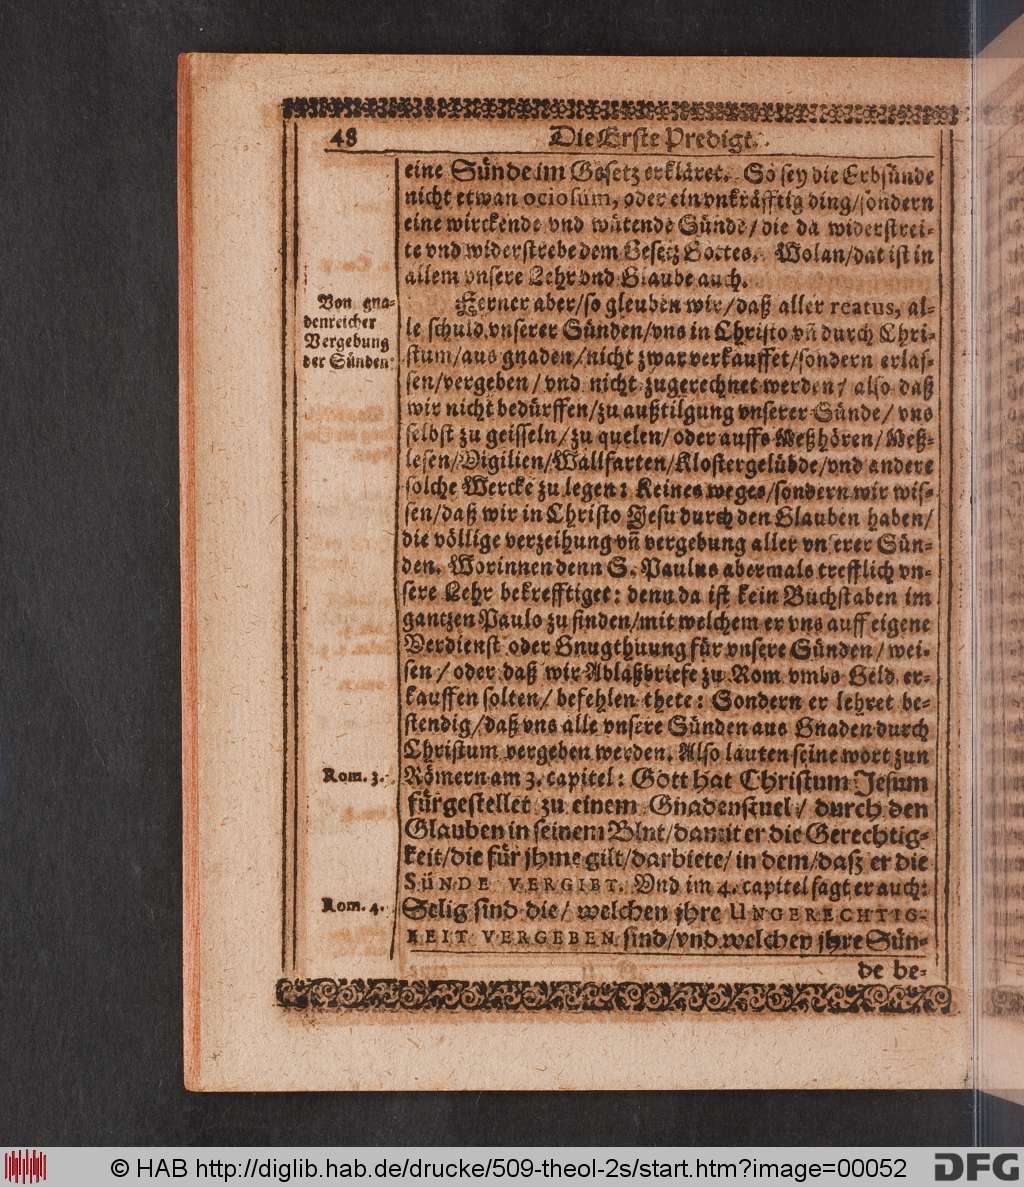 48
Die Erste Predigt.
eine Sünde im Gesetz erkläret. So sey die Erbsünde
nicht etwan ociosum, oder ein vnkräfftig ding/sondern
eine wirckende vnd wütende Sünde/die da widerstrei-
te vnd widerstrebe dem Gesetz Gottes. Wolan/dat ist in
allem vnsere Lehr vnd Glaube auch.
Von gna-
denreicher
Vergebung
der Sünden.
Ferner aber/so gleuben wir/daß aller reatus, al-
le schuld vnserer Sünden/vns in Christo vñ durch Chri-
stum/aus gnaden/nicht zwar verkauffet/sondern erlas-
sen/vergeben/vnd nicht zugerechnet werden/ also daß
wir nicht bedürffen/zu außtilgung vnserer Sünde/ vns
selbst zu geisseln/zu quelen/oder auffs Meßhören/Meß-
lesen/Vigilien/Wallfarten/Klostergelübde/vnd andere
solche Wercke zu legen: Keines weges/sondern wir wis-
sen/daß wir in Christo Jesu durch den Glauben haben/
die völlige verzeihung vñ vergebung aller vnserer Sün-
den. Worinnen denn S. Paulus abermals trefflich vn-
sere Lehr bekrefftiget: denn da ist kein Buchstaben im
gantzen Paulo zu finden/mit welchem er vns auff eigene
Verdienst oder Gnugthuung für vnsere Sünden/ wei-
sen/ oder daß wir Ablaßbriefe zu Rom vmbs Geld er-
kauffen solten/ befehlen thete: Sondern er lehret be-
stendig/daß vns alle vnsere Sünden aus Gnaden durch
Christum vergeben werden. Also lauten seine wort zun
Rom. 3.
Römern am 3. capitel: Gott hat Christum Jesum
fürgestellet zu einem Gnadenstuel/ durch den
Glauben in seinem Blut/damit er die Gerechtig-
keit/die für jhme gilt/darbiete/ in dem/daß er die
SÜNDE VERGIBT. Vnd im 4. capitel sagt er auch:
Rom. 4.
Selig sind die/ welchen jhre UNGERECHTIG-
KEIT VERGEBEN sind/vnd welchen jhre Sün-
de be-
© HAB http://diglib.hab.de/drucke/509-theol-2s/start.htm?image=00052
DFG